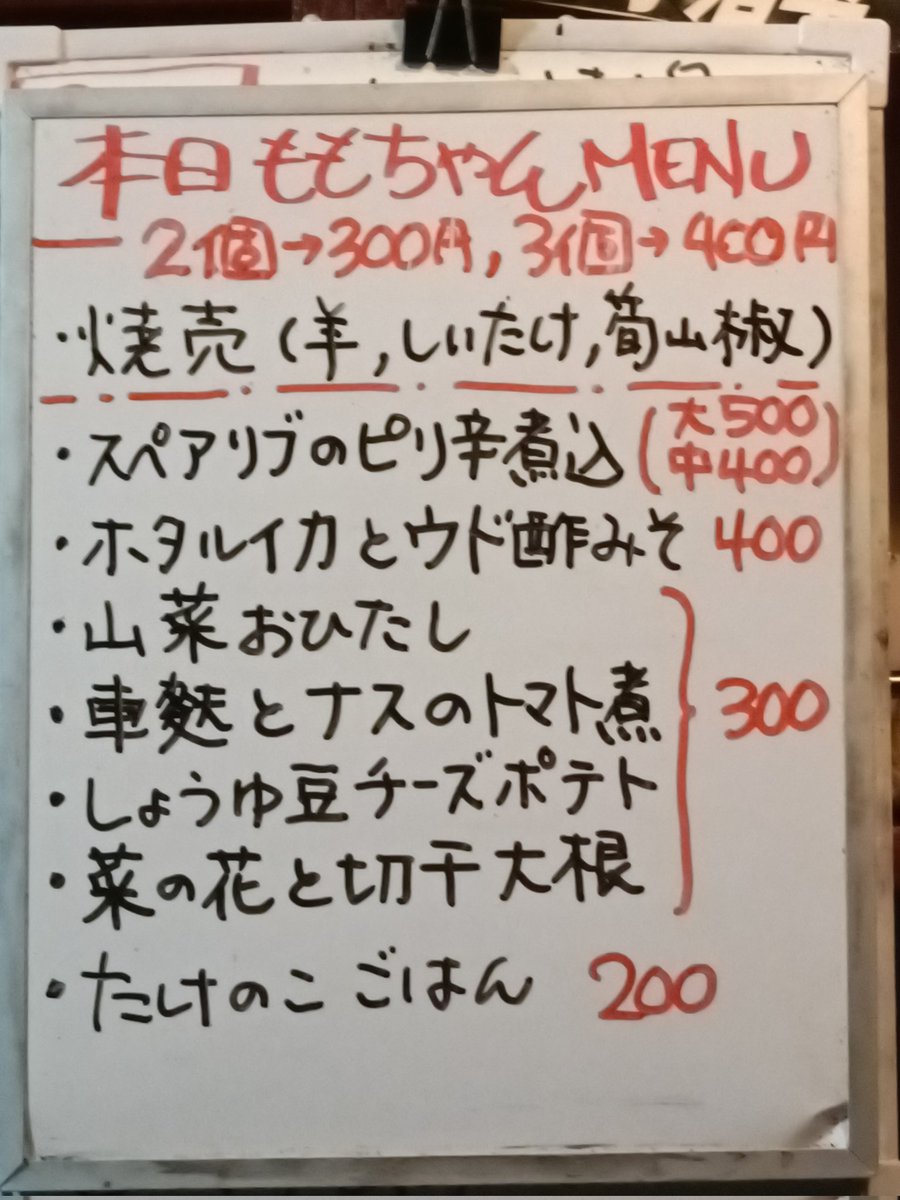 本日ももちゃんMENU
2個→300円, 3個→400円
・焼売 (羊, しいたけ, 筍山椒)
・スペアリブのピリ辛煮込 (大500 中400)
・ホタルイカとウド酢みそ 400
・山菜おひたし
・車麩とナスのトマト煮 300
・しょうゆ豆チーズポテト
・菜の花と切干大根
・たけのこごはん 200